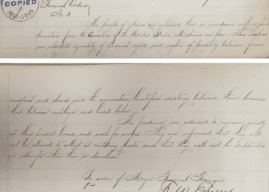 COPIED
General Orders
No. 3
The people of Texas are informed that, in accordance with a proclamation
from the Executive of the United States all slaves are free. This involves
an absolute equality of personal rights and rights of property between former
masters and slaves and the connection heretofore existing between them becomes
that between employer and hired labor.
The freedmen are advised to remain quietly
at their present homes and work for wages. They are informed that they will
not be allowed to collect at military posts and that they will not be supported
in idleness either there or elsewhere.
By order of Major General Granger